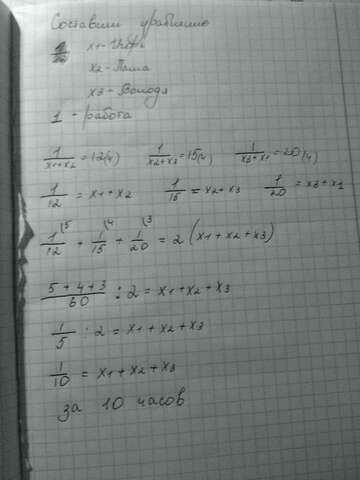 Составим уравнение
x1 - Игорь
x2 - Паша
x3 - Володя
1 - работа
1/(x1+x2) = 12(ч) 1/(x2+x3) = 15(ч) 1/(x3+x1) = 20(ч)
1/12 = x1 + x2 1/15 = x2 + x3 1/20 = x3 + x1
1/12 (5 + 1/15 (4 + 1/20 (3 = 2 (x1 + x2 + x3)
(5 + 4 + 3)/60 : 2 = x1 + x2 + x3
1/5 : 2 = x1 + x2 + x3
1/10 = x1 + x2 + x3
за 10 часов